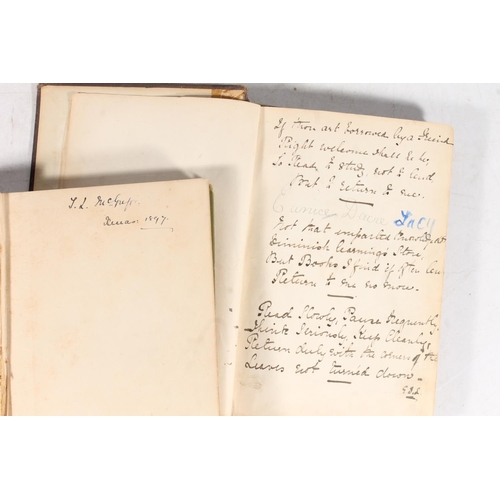 T. L. McGregor
Xmas 1897.
If thou art borrowed by a friend
Right welcome shall he be,
To Read, to study, not to lend
But to return to me.
Lacy
Not that imparted knowledge doth
Diminish learning's Store,
But Books I find if often lent
Return to me no more.
Read Slowly, Pause frequently,
Think Seriously, Keep Cleanly,
Return duly with the corners of the
Leaves not turned down.